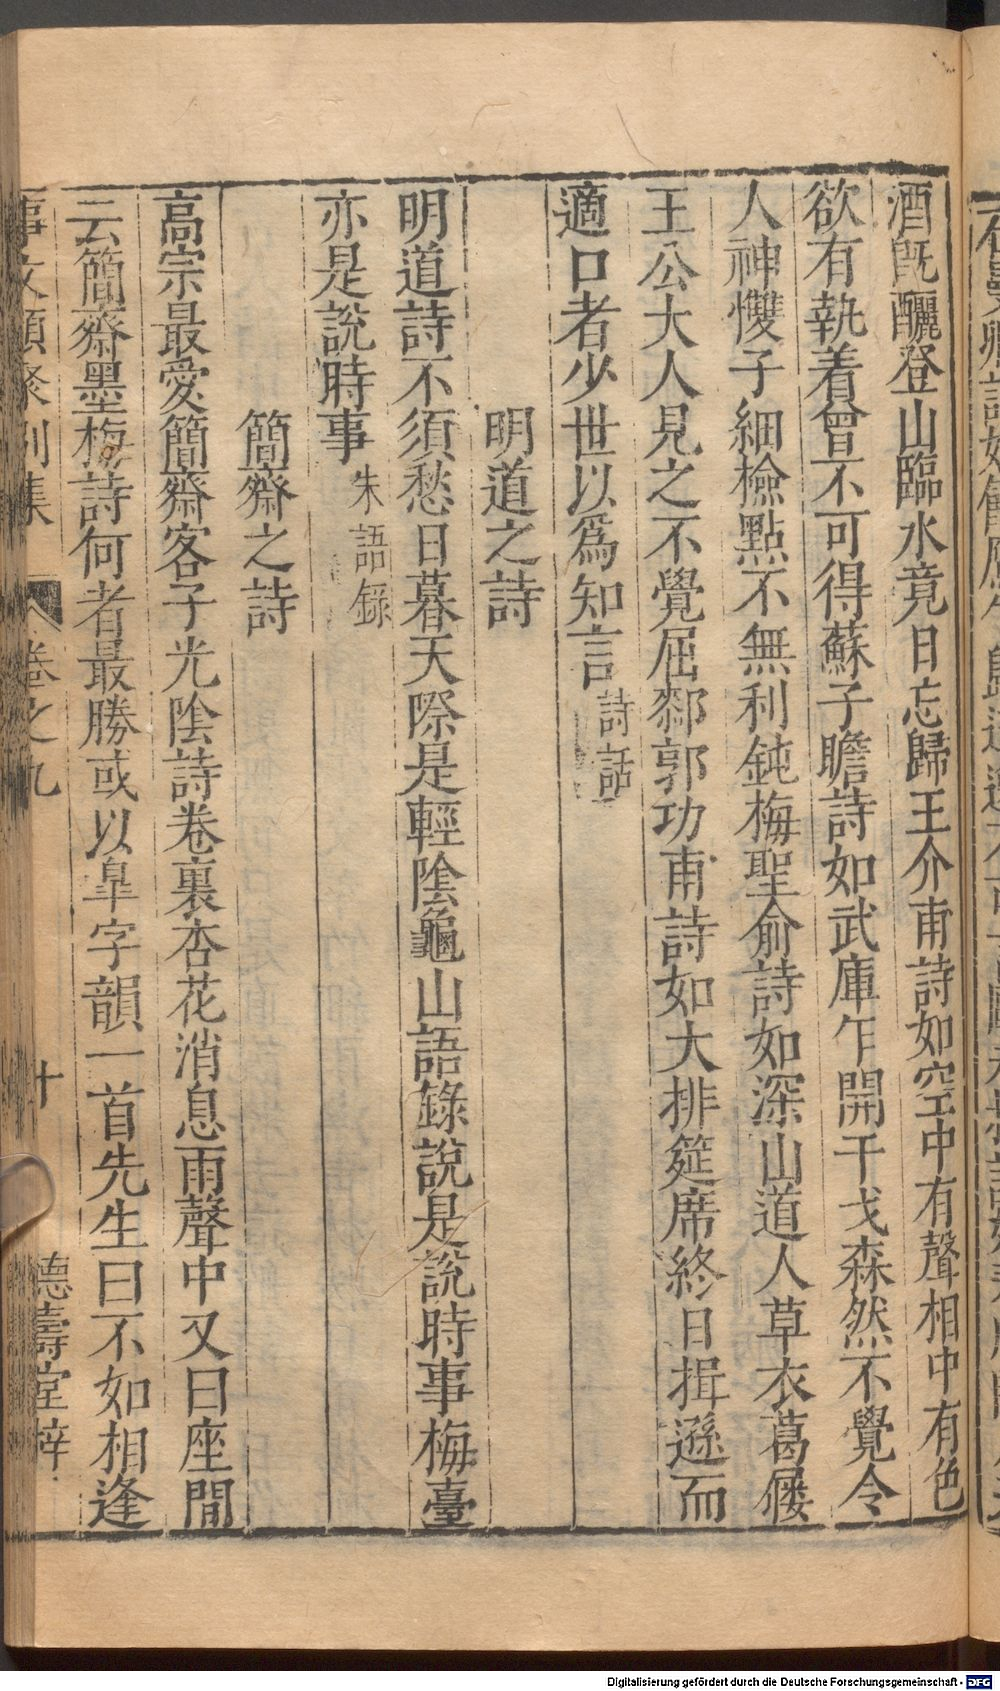 酒旣釃登山臨水竟日忘歸王介甫詩如空中有聲相中有色
欲有執着曾不可得蘇子瞻詩如武庫乍開干戈森然不覺令
人神懓子細檢點不無利鈍梅聖俞詩如深山道人草衣葛屨
王公大人見之不覺屈郄郭功甫詩如大排筵席終日揖遜而
適口者少世以爲知言詩話
明道之詩
明道詩不須愁日暮天際是輕陰龜山語錄說是說時事梅臺
亦是說時事朱語錄
簡齋之詩
高宗最愛簡齋客子光陰詩卷裏杏花消息雨聲中又曰座間
云簡齋墨梅詩何者最勝或以臯字韻一首先生曰不如相逢
事文類聚別集 卷之九 十 德壽堂梓
Digitalisierung gefördert durch die Deutsche Forschungsgemeinschaft - DFG